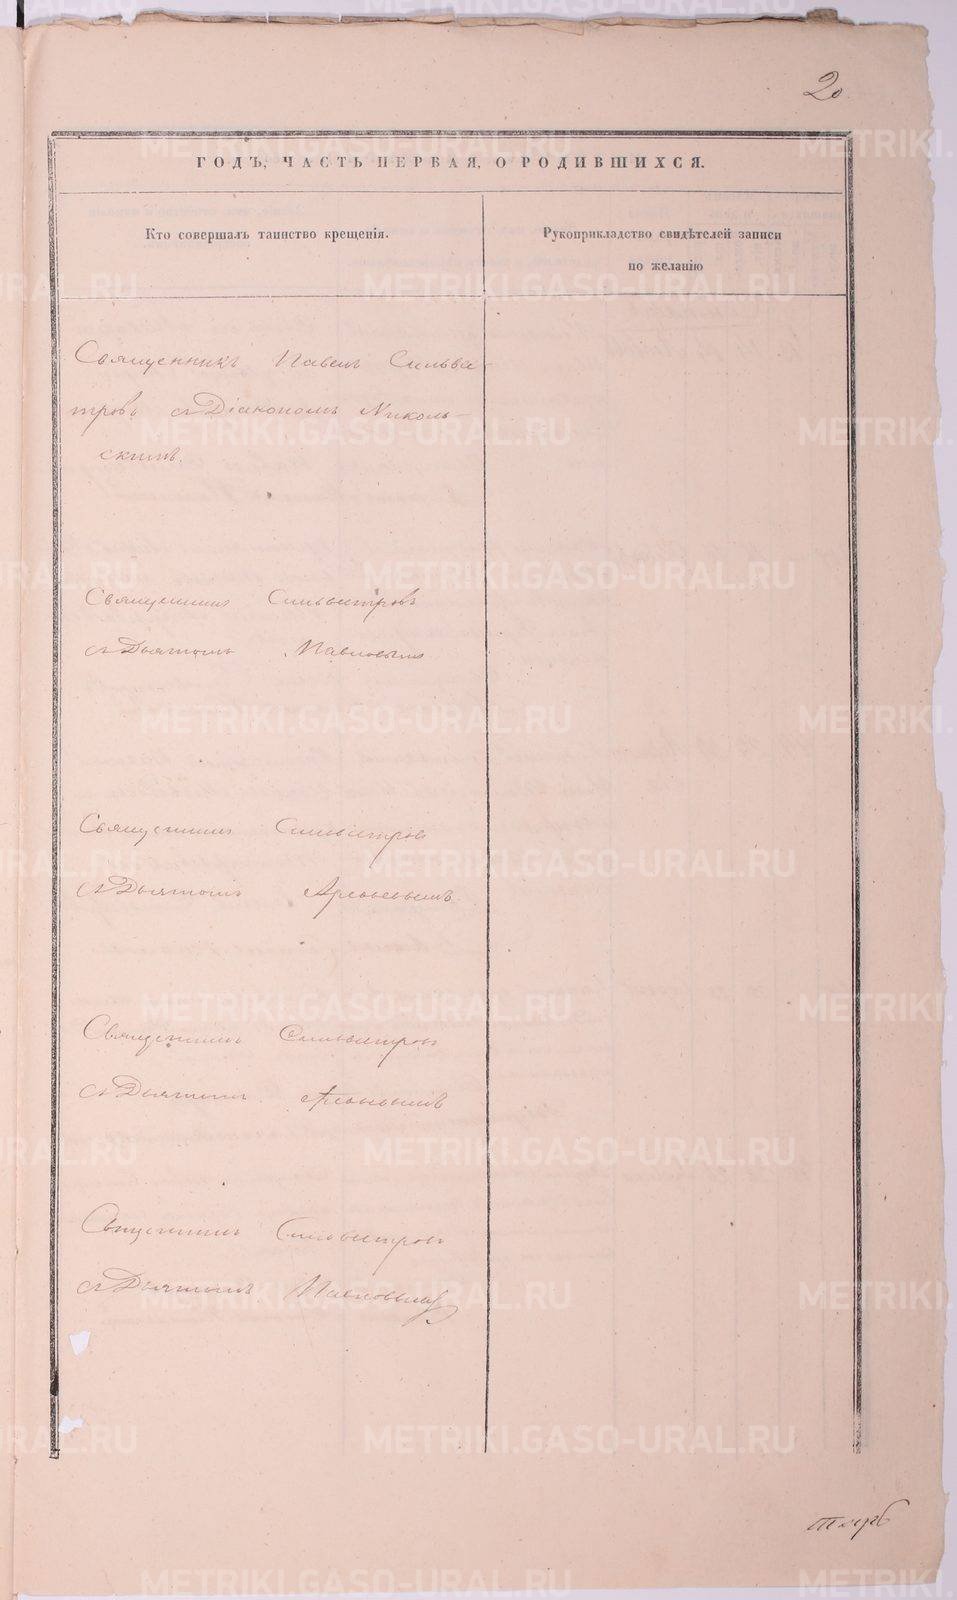 20
ГОДЪ, ЧАСТЬ ПЕРВАЯ, О РОДИВШИХСЯ.
Кто совершалъ таинство крещенія.
Рукоприкладство свидѣтелей записи
по желанію
Священникъ Павелъ Сильве-
тровъ съ Діакономъ Николь-
скимъ.
Священникъ Сильвестровъ
съ Дьячкомъ Павловымъ
Священникъ Сильвестровъ
съ Дьячкомъ Арсеньевымъ
Священникъ Сильвестровъ
съ Дьячкомъ
Священникъ Сильвестровъ
съ Дьячкомъ Павловымъ
METRIKI.GASO-URAL.RU